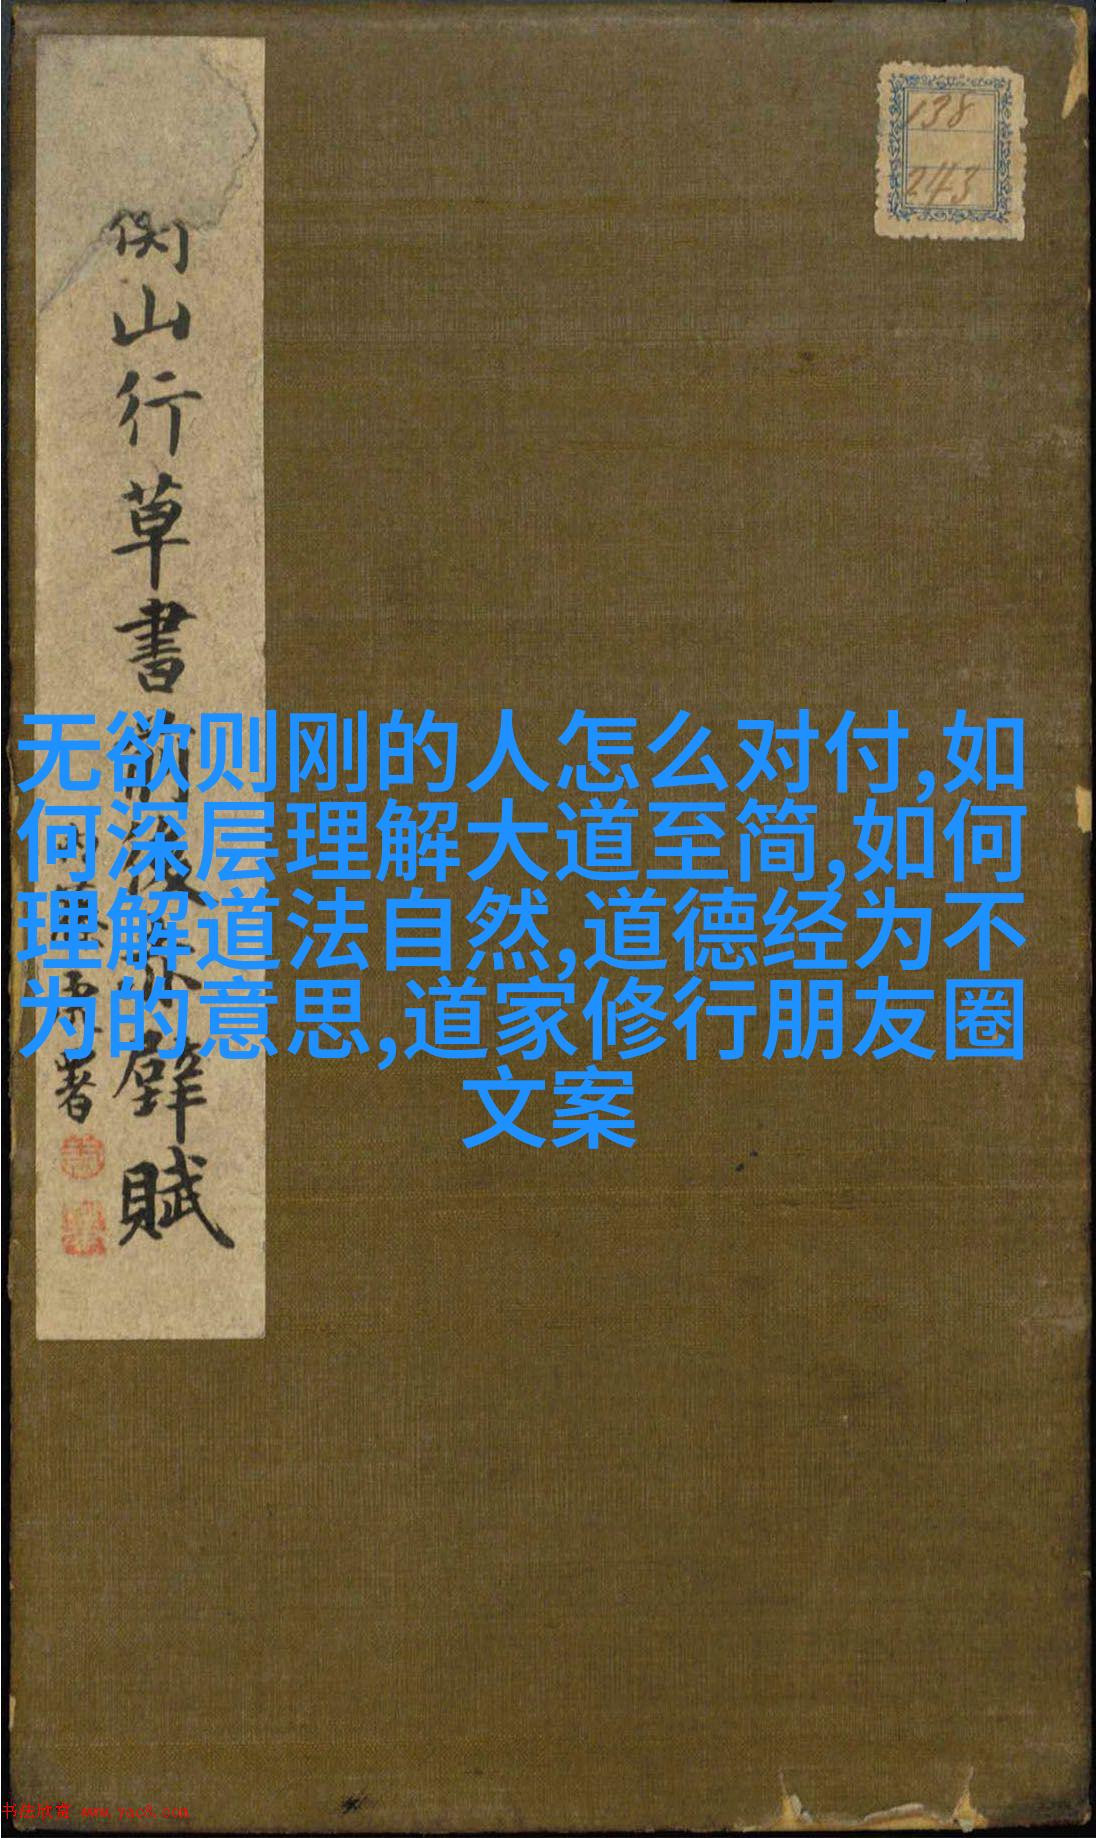 138
243
山行草書前後赤壁賦
署
无欲则刚的人怎么对付,如
何深层理解大道至简,如何
理解道法自然,道德经为不
为的意思,道家修行朋友圈
文案
书法欣赏 www.yac8.com